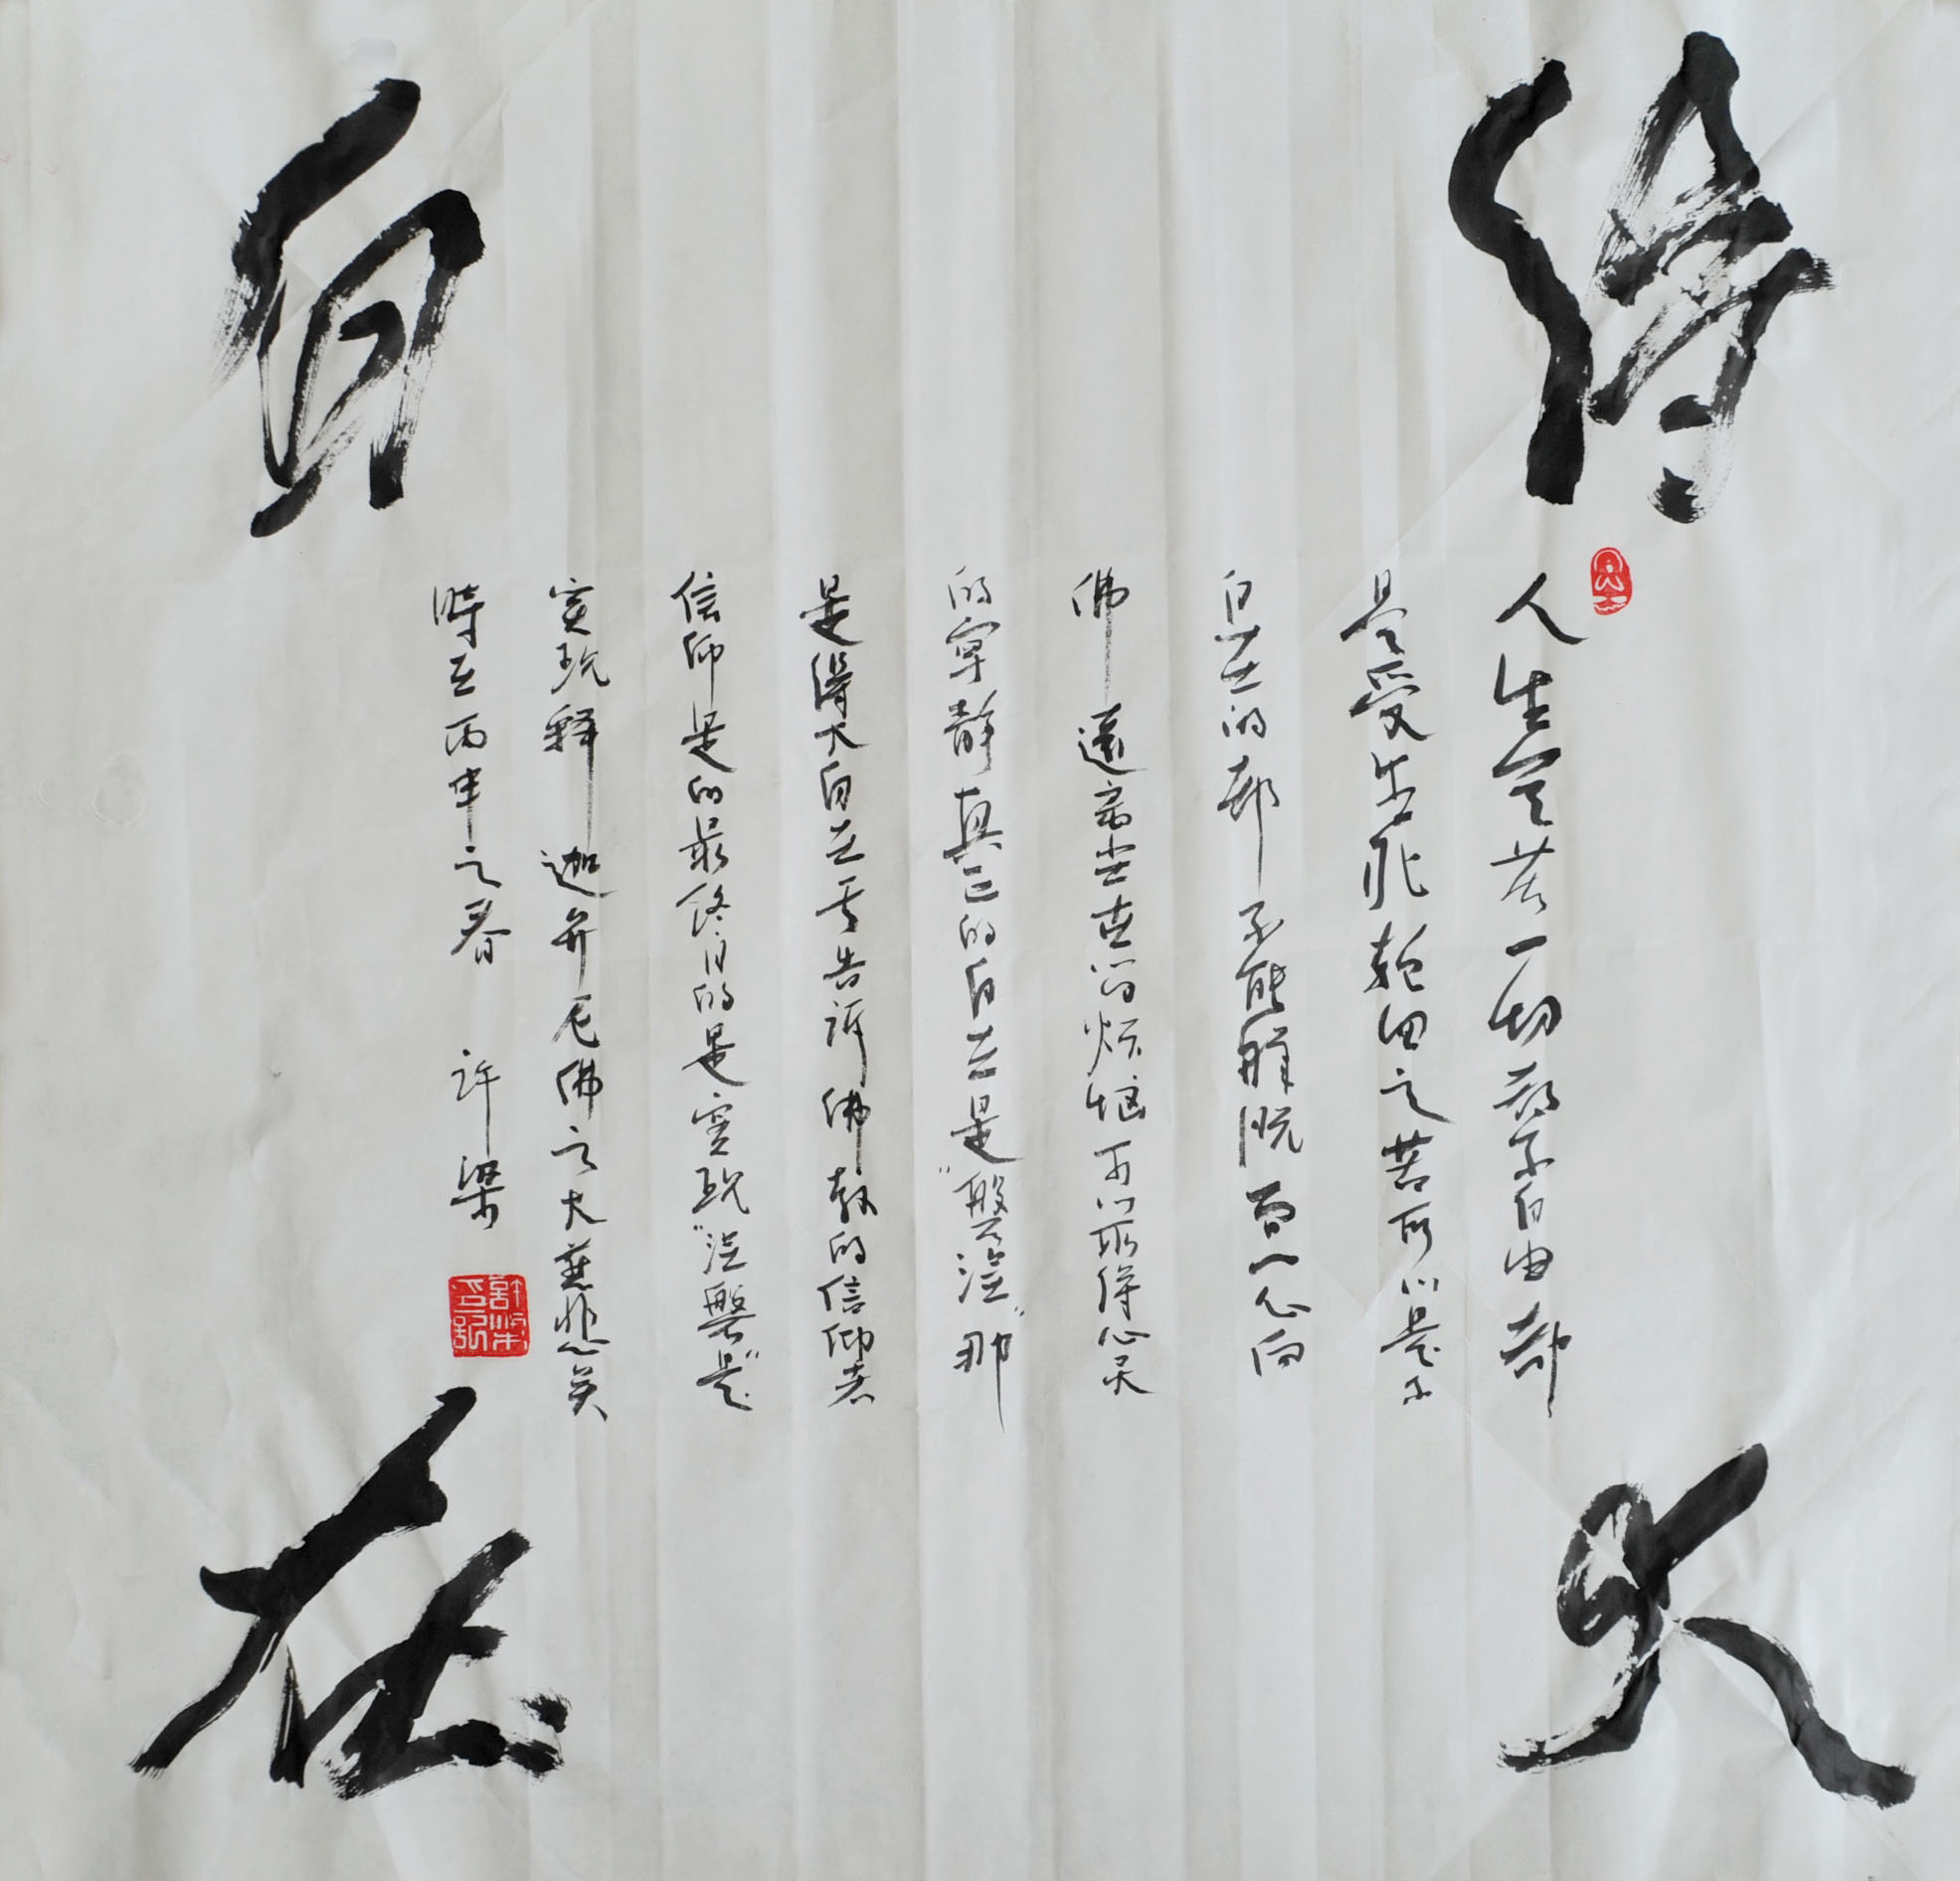 得大自在
人生实苦一切都不自由都
是受生死轮回之苦所以是不
自在的都不能解脱而一心向
佛远离尘世的烦恼可以取得心灵
的宁静真正的自在是“槃涅”那
是得大自在于告诉佛教的信仰者
信仰是的最终目的是实现“涅槃”是
实现释迦牟尼佛之大慈悲矣
時在丙申之春 许梁
許梁印記